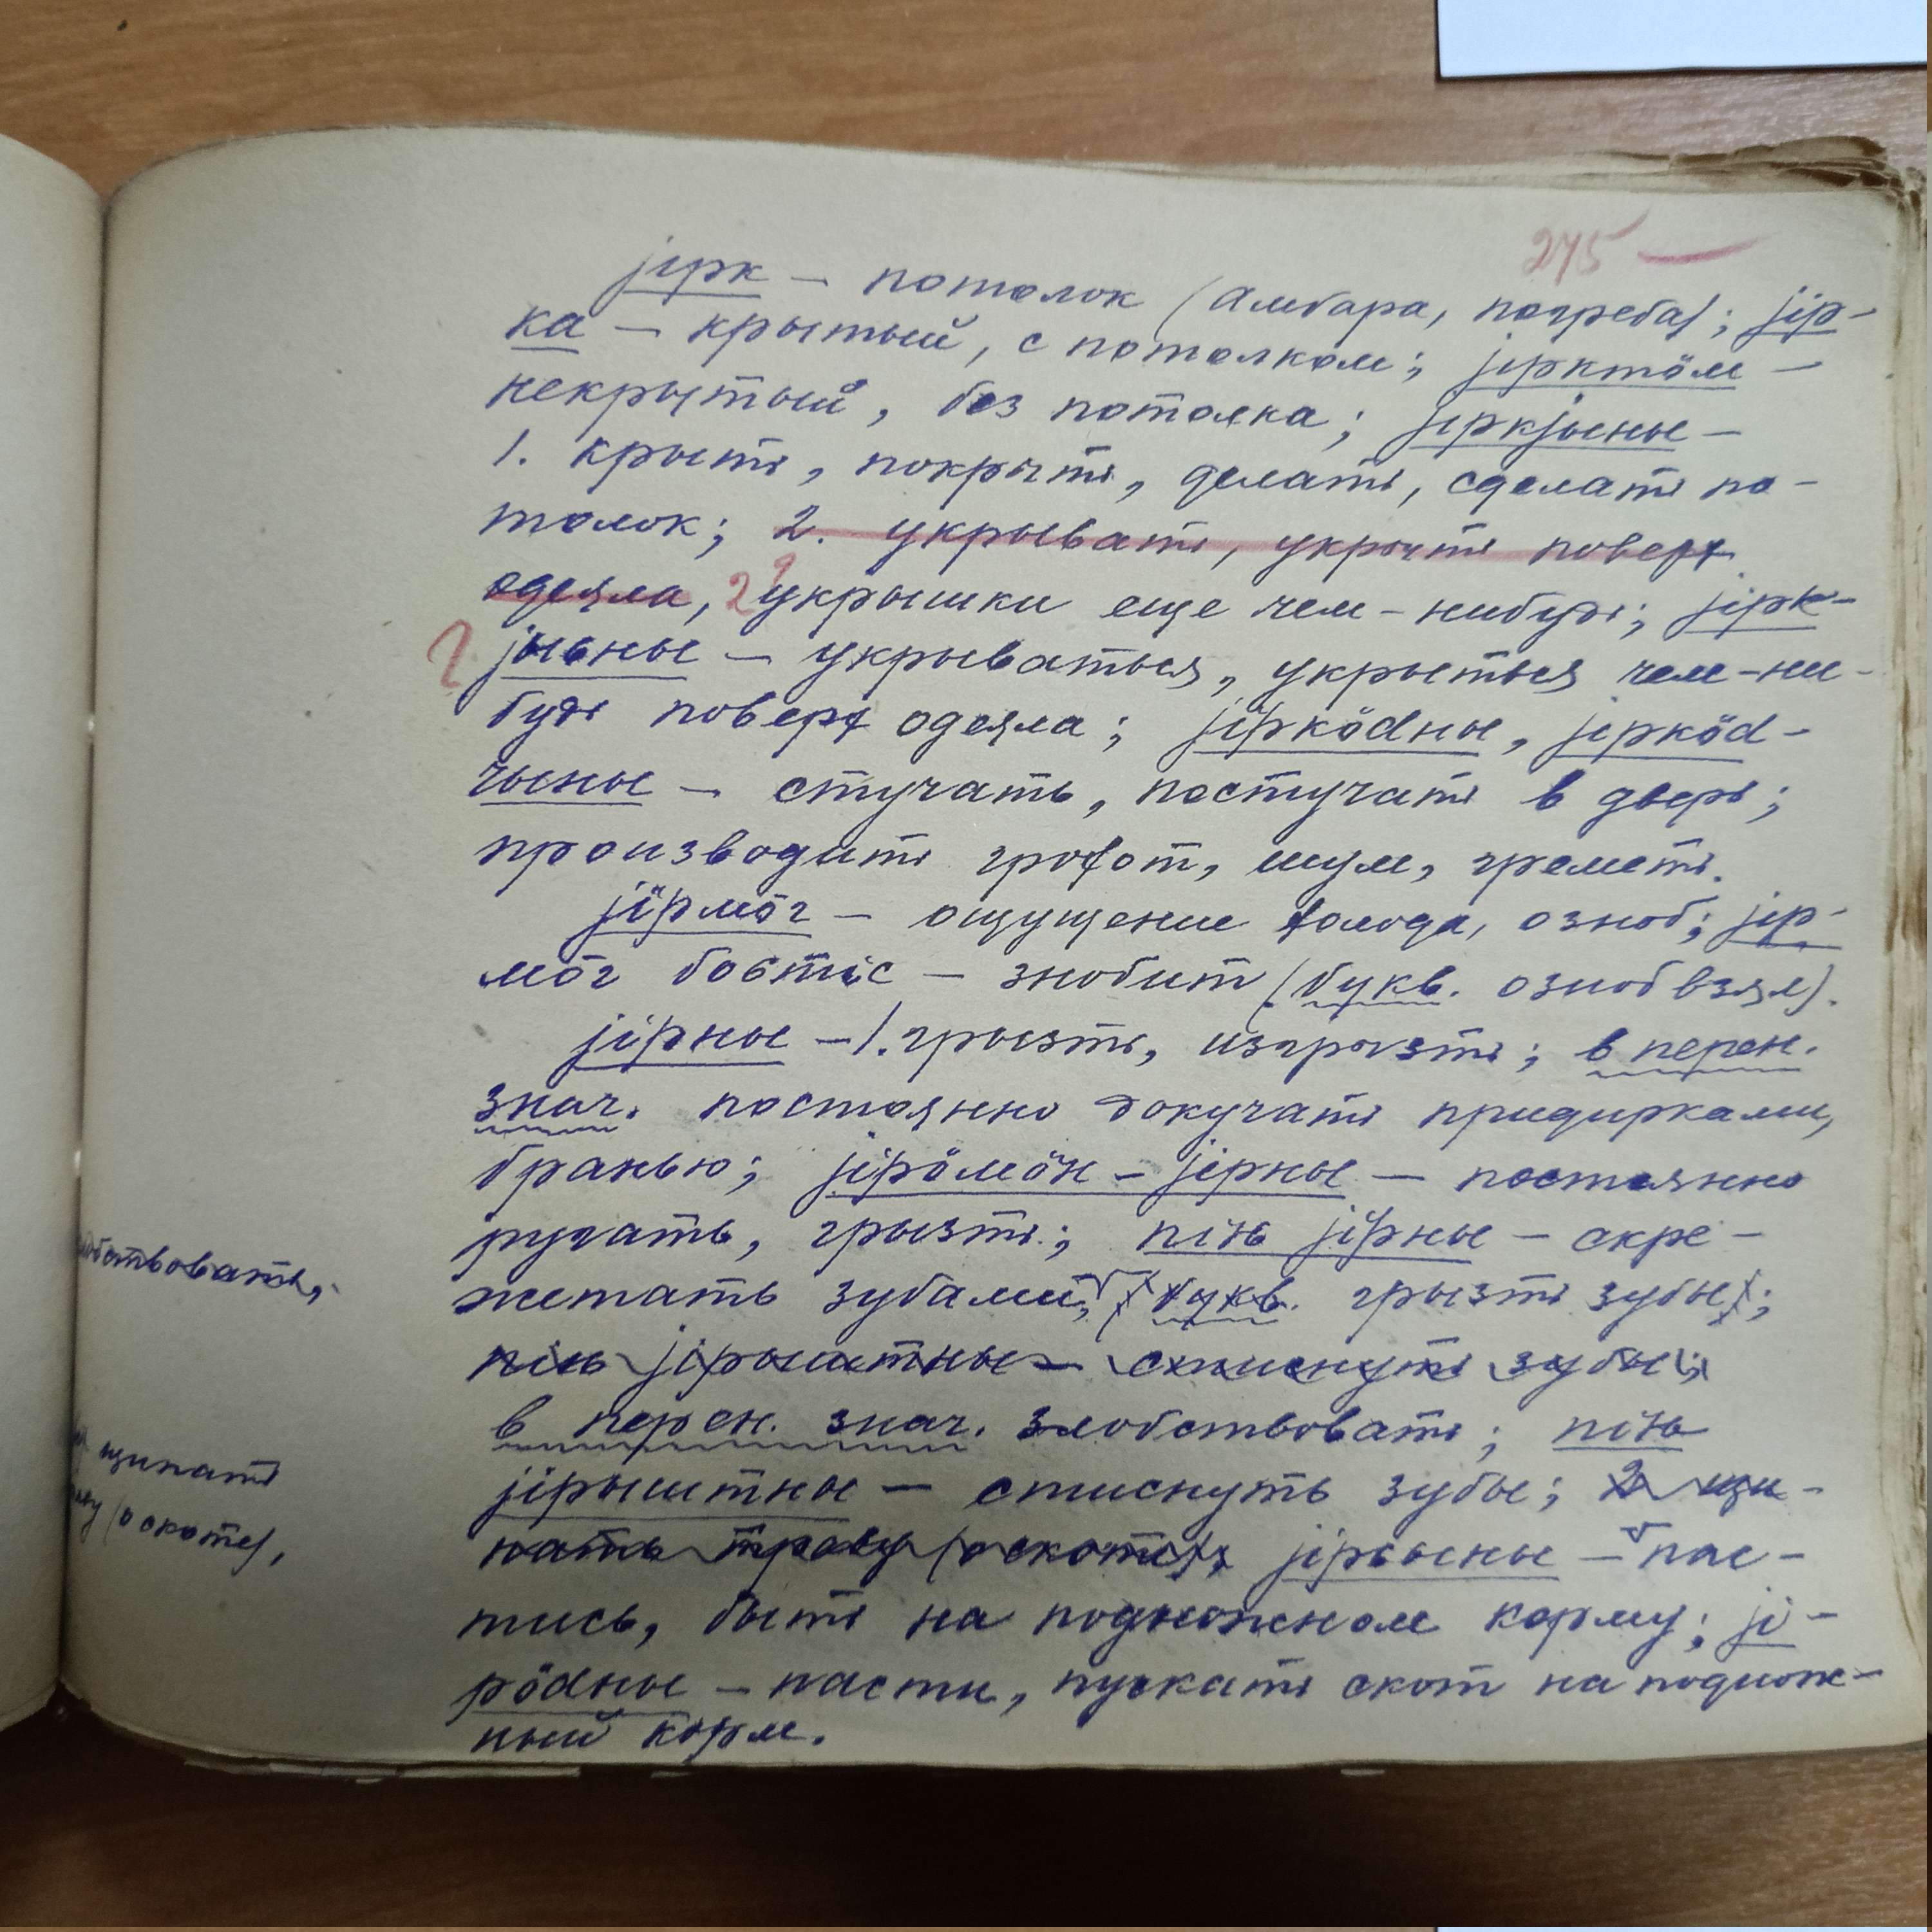 275 —
jiрк — потолок (амбара, погреба); jiр-
ка — крытый, с потолком; jiрктöм —
некрытый, без потолка; jiркjыны —
1. крыть, покрыть, делать, сделать по-
толок; 2. укрывать, укрыть поверх
одеяла, 2 укрышки еще чем-нибудь; jiрк-
jыны — укрываться, укрыться чем-ни-
будь поверх одеяла; jiркödны, jiркöd-
чыны — стучать, постучать в дверь;
производить грохот, шум, греметь.
jiрмöг — ощущение холода, озноб; jiр-
мöг бостiс — знобит (букв. озноб взял).
jiрны — 1. грызть, изгрызть; в перен.
знач. постоянно докучать придирками,
бранью; jiрöмöн-jiрны — постоянно
ругать, грызть; пiнь jiрны — скре-
жетать зубами, (букв. грызть зубы);
пiнь jiрыштны — стиснуть зубы;
в перен. знач. злобствовать; пiнь
jiрыштны — стиснуть зубы; 2. щи-
пать траву (о скоте); jiрсьыны — пас-
тись, быть на подножном корму; ji-
рödны — пасти, пускать скот на поднож-
ный корм.
злобствовать,
щипать
(о скоте),